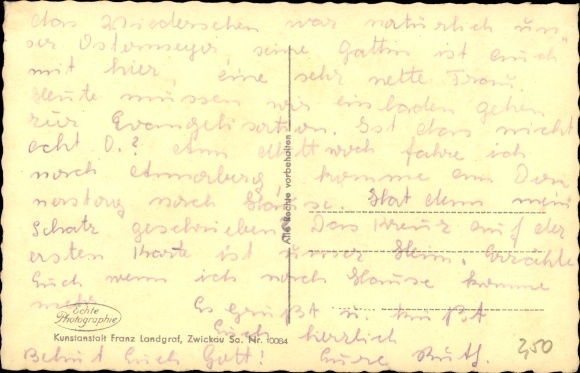 das Wiedersehen war natürlich un-
ser Ostermeyer, seine Gattin ist auch
mit hier, eine sehr nette Frau.
Heute müssen wir einladen gehen
zur Evangelisation. Ist das nicht
echt O.? Am Mittwoch fahre ich
nach Annaberg, komme am Don
nerstag nach Hause. Hat denn mein
Schatz geschrieben? Das Kreuz auf der
ersten Karte ist unser Heim. Erzähle
Euch wenn ich nach Hause komme
mehr. Es grüßt u. küßt
Euch herzlich
Behüt Euch Gott! Eure Ruth.
Alle Rechte vorbehalten
Echte
Photographie
Kunstanstalt Franz Landgraf, Zwickau Sa. Nr. 10084
2,50